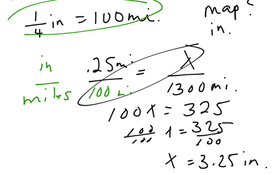 1/4 in = 100 mi. map?
in.
in/miles .25 mi/100 mi = X/1300 mi.
100X = 325
100/100 X = 325/100
X = 3.25 in.